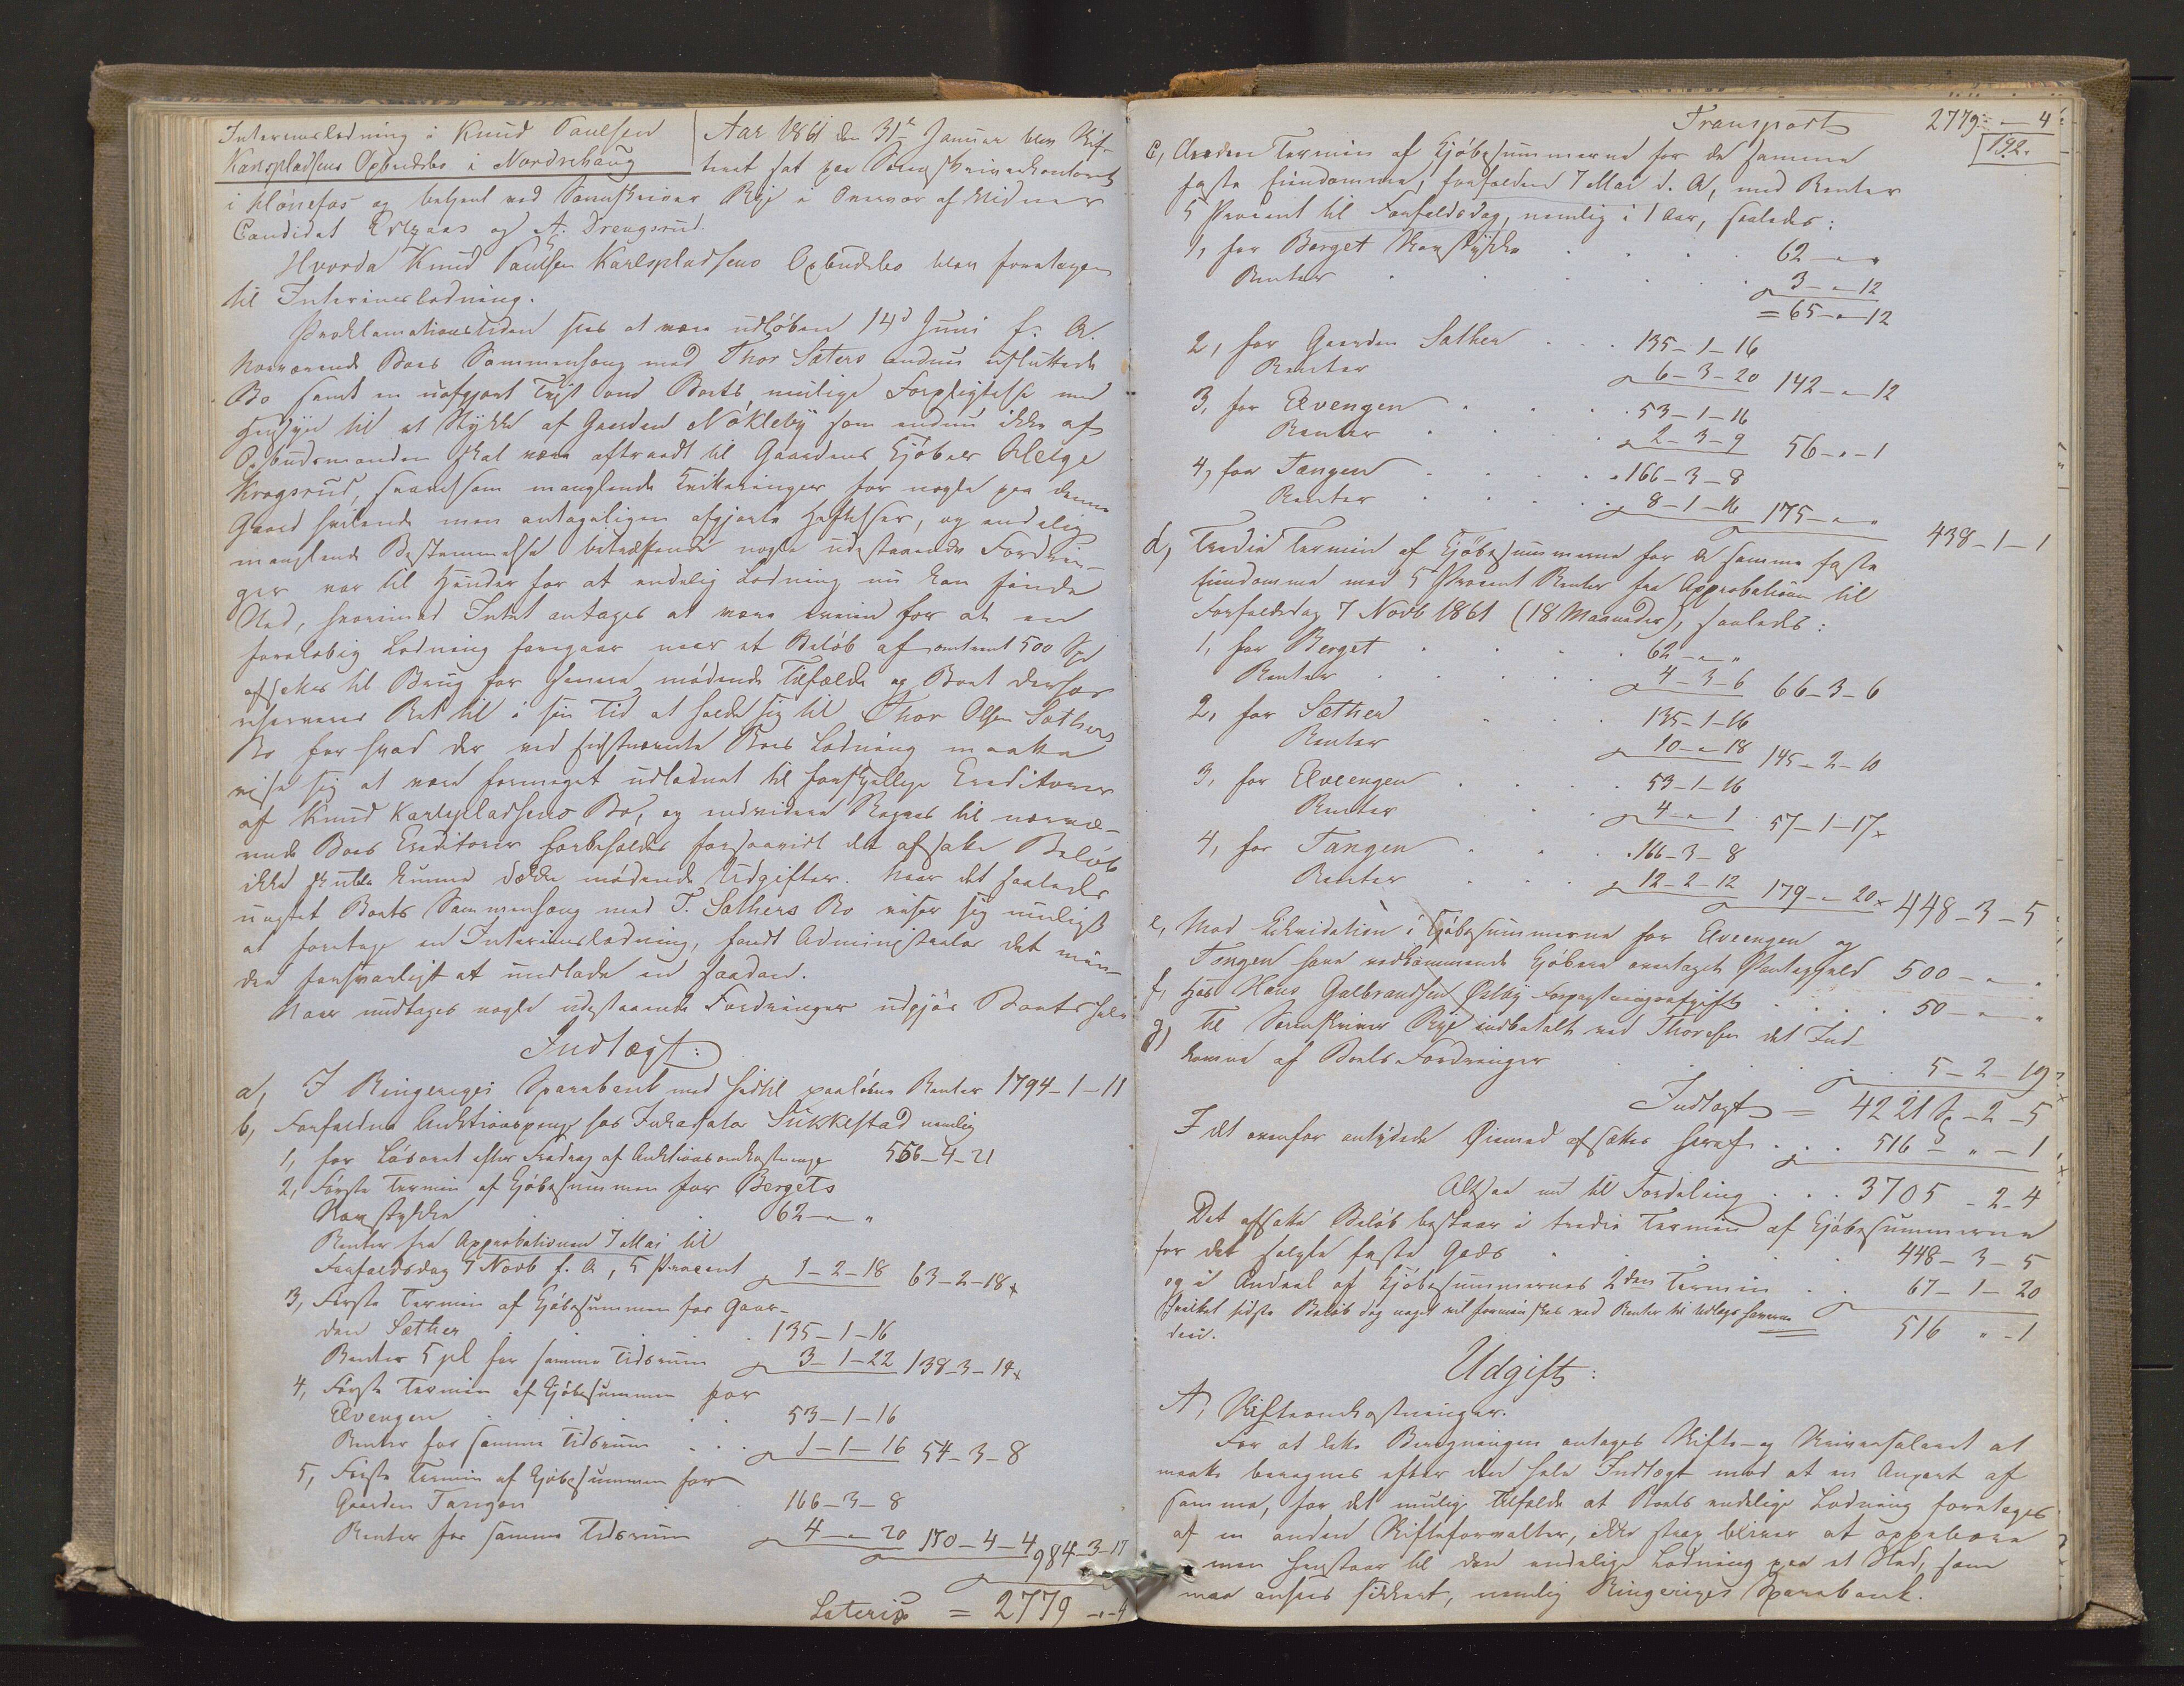 Interimslodning i Knud Paulsen
Karlspladsens Opbudsbo i Nordrehaug
Aar 1861 den 31te Januar blev Skif-
teret sat paa Sorenskriverkontoret
i Hönefos og betjent ved Sorenskriver Rye i Overvær af Vidner
Candidat og A. Drengsrud.
Hvorda Knud Paulsen Karlspladsens Opbudsbo blev foretagen
til Interimslodning.
Proklamationstiden sees at være udløben 14d Juni f. A.
Nærværende Boes Sammenhæng med Thor Sæters endnu usluttede
Bo samt en uafgjort Tvist om Boets mulige Forpligtelse med
Hensyn til et Stykke af Gaarden Nökleby som endnu ikke af
Opbudsmanden skal være aftraadt til Gaardens Kjöber Helge
Krogsrud, saavelsom manglende Qvitteringer for nogle paa denne
Gaard hvilende men antageligen afgjorte Heftelser, og endelig
manglende Bestemmelse betræffende nogle udestaaende Fordrin-
ger var til Hinder for at endelig Lodning nu kan finde
Sted, hvorimod Intet antages at være iveien for at en
foreløbig Lodning foregaar naar et Beløb af omtrent 500 Spd
afsættes til Brug for senere mødende Tilfælde og Boet derhos
reserveres Ret til i sin Tid at holde sig til Thor Olsen Sæthers
Bo for hvad der ved sidstnævnte Boes Lodning maatte
vise sig at være formeget udlodnet til forskjellige Creditorer
af Knud Karlspladsens Bo, og endvidere Regres til nærvæ-
rende Boes Creditorer forbeholdes forsaavidt det afsatte Beløb
ikke skulde kunne dække mødende Udgifter. Naar det saaledes
uagtet Boets Sammenhæng med T. Sæthers Bo viser sig muligt
at foretage en Interimslodning, fandt Administrator det min-
dre forsvarligt at undlade en saadan.
Naar undtages nogle udestaaende Fordringer udgjör Boets hele
Indtægt:
a, I Ringeriges Sparebank med hidtil paaløbne Renter 1794-1-11
b, Forfaldne Auktionspenge hos Inkassator Sukkestad nemlig
1, for Løsøret efter Fradrag af Auktionsomkostninger 556-4-21
2, Förste Termin af Kjöbesummen for Bergets
Kornstykke . . . 62-"-"
Renter fra Approbationen 7 Mai til
Forfaldsdag 7 Novb f. A, 5 Procent 1-2-18 63-2-18
3, Förste Termin af Kjöbesummen for Gaar-
den Sæther . . . 135-1-16
Renter 5 pCt for samme Tidsrum 3-1-22 138-3-14
4, Förste Termin af Kjöbesummen for
Elvengen . . . 53-1-16
Renter for samme Tidsrum . . . 1-1-16 54-3-8
5, Förste Termin af Kjöbesummen for
Gaarden Tangen . . . 166-3-8
Renter for samme Tidsrum 4-"-20 170-4-4 984-3-17
Lateris = 2779-"-4
Transport 2779-"-4
192.
c, Anden Termin af Kjöbesummerne for de samme
faste Eiendomme, forfalden 7 Mai d. A, med Renter
5 Procent til Forfaldsdag, nemlig i 1 Aar, saaledes:
1, for Berget Kornstykke . . . 62-"-"
Renter . . . 3-"-12
= 65-"-12
2, for Gaarden Sæther . . . 135-1-16
Renter 6-3-20 142-"-12
3, for Elvengen . . . 53-1-16
Renter . . . 2-3-9 56-"-1
4, for Tangen . . . 166-3-8
Renter . . . 8-1-16 175-"-"
438-1-1
d, Tredie Termin af Kjöbesummerne for de samme faste
Eiendomme med 5 Procent Renter fra Approbationen til
Forfaldsdag 7 Novb 1861 (18 Maaneder), saaledes:
1, for Berget . . . 62-"-"
Renter . . . 4-3-6 66-3-6
2, for Sæther . . . 135-1-16
Renter 10-"-18 145-2-10
3, for Elvengen . . . 53-1-16
Renter . . . 4-"-1 57-1-17
4, for Tangen . . . 166-3-8
Renter . . . 12-2-12 179-"-20 448-3-5
e, Mod Likvidation i Kjöbesummerne for Elvengen og
Tangen have vedkommende Kjöbere overtaget Pantegjeld 500-"-"
f, Hos Hans Gulbrandsen Østby Forpagtningsafgift . . . 50-"-"
g, Til Sorenskriver Rye indbetalt ved Thoresen det Ind-
komne af Boets Fordringer . . . 5-2-19
Indtægt = 4221 Sp-2-5
I det ovenfor antydede Øiemed afsættes heraf . . . 516-"-1
Altsaa nu til Fordeling . . . 3705-2-4
Det afsatte Beløb bestaar i tredie Termin af Kjöbesummerne
for det solgte faste Gods . . . 448-3-5
og i Andeel af Kjöbesummernes 2den Termin . . . 67-1-20
hvilket sidste Beløb dog noget vil formindskes ved Renter til Udlægshaverne
deri. 516 "-1
Udgift:
A, Skifteomkostninger.
For at lette Beregningen antages Skifte- og Universalavet at
maatte beregnes efter den hele Indtægt mod at en Anpart af
samme, for det mulige Tilfælde at Boets endelige Lodning foretages
af en anden Skifteforvalter, ikke strax bliver at oppebære
men henstaar til den endelige Lodning paa et Sted, som
maa ansees sikkert, nemlig Ringeriges Sparebank.